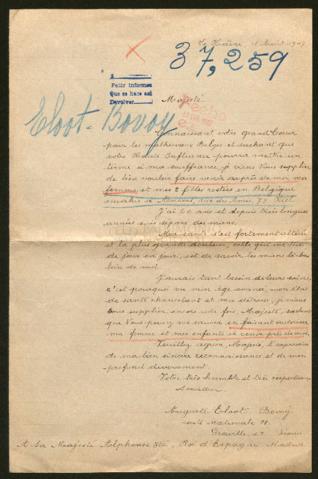 Le Havre
37,259
Pedir informes
Que se haga así
Devolver
Majesté
Eloot-Bovoy
Connaissant votre grand Cœur
pour les malheureux Belges et sachant que
votre Haute Influence pourra mettre un
terme à ma souffrance, je viens vous supplier
de bien vouloir faire venir auprès de moi ma
femme et mes 2 filles restées en Belgique
J'ai 60 ans et depuis trois longues
années suis séparé des miens.
Ma santé s'est fortement altérée
et la plus grande douleur, celle qui me tue
de jour en jour, est de savoir les miens si
loin de moi.
J'aurais tant besoin de leurs soins,
c'est pourquoi vu mon âge avancé, mon état
de santé chancelant et ma détresse, je viens
vous supplier encore une fois, Majesté, sachant
que Vous pouvez me sauver en faisant
ma femme et mes enfants et près de moi.
Veuillez agréer, Majesté, l'expression
de ma bien sincère reconnaissance et de mon
profond dévouement.
Votre très humble et très respectueux
Serviteur
Auguste Eloot Bovoy
route Nationale
Graville
A Sa Majesté Alphonse XIII, Roi d'Espagne Madrid